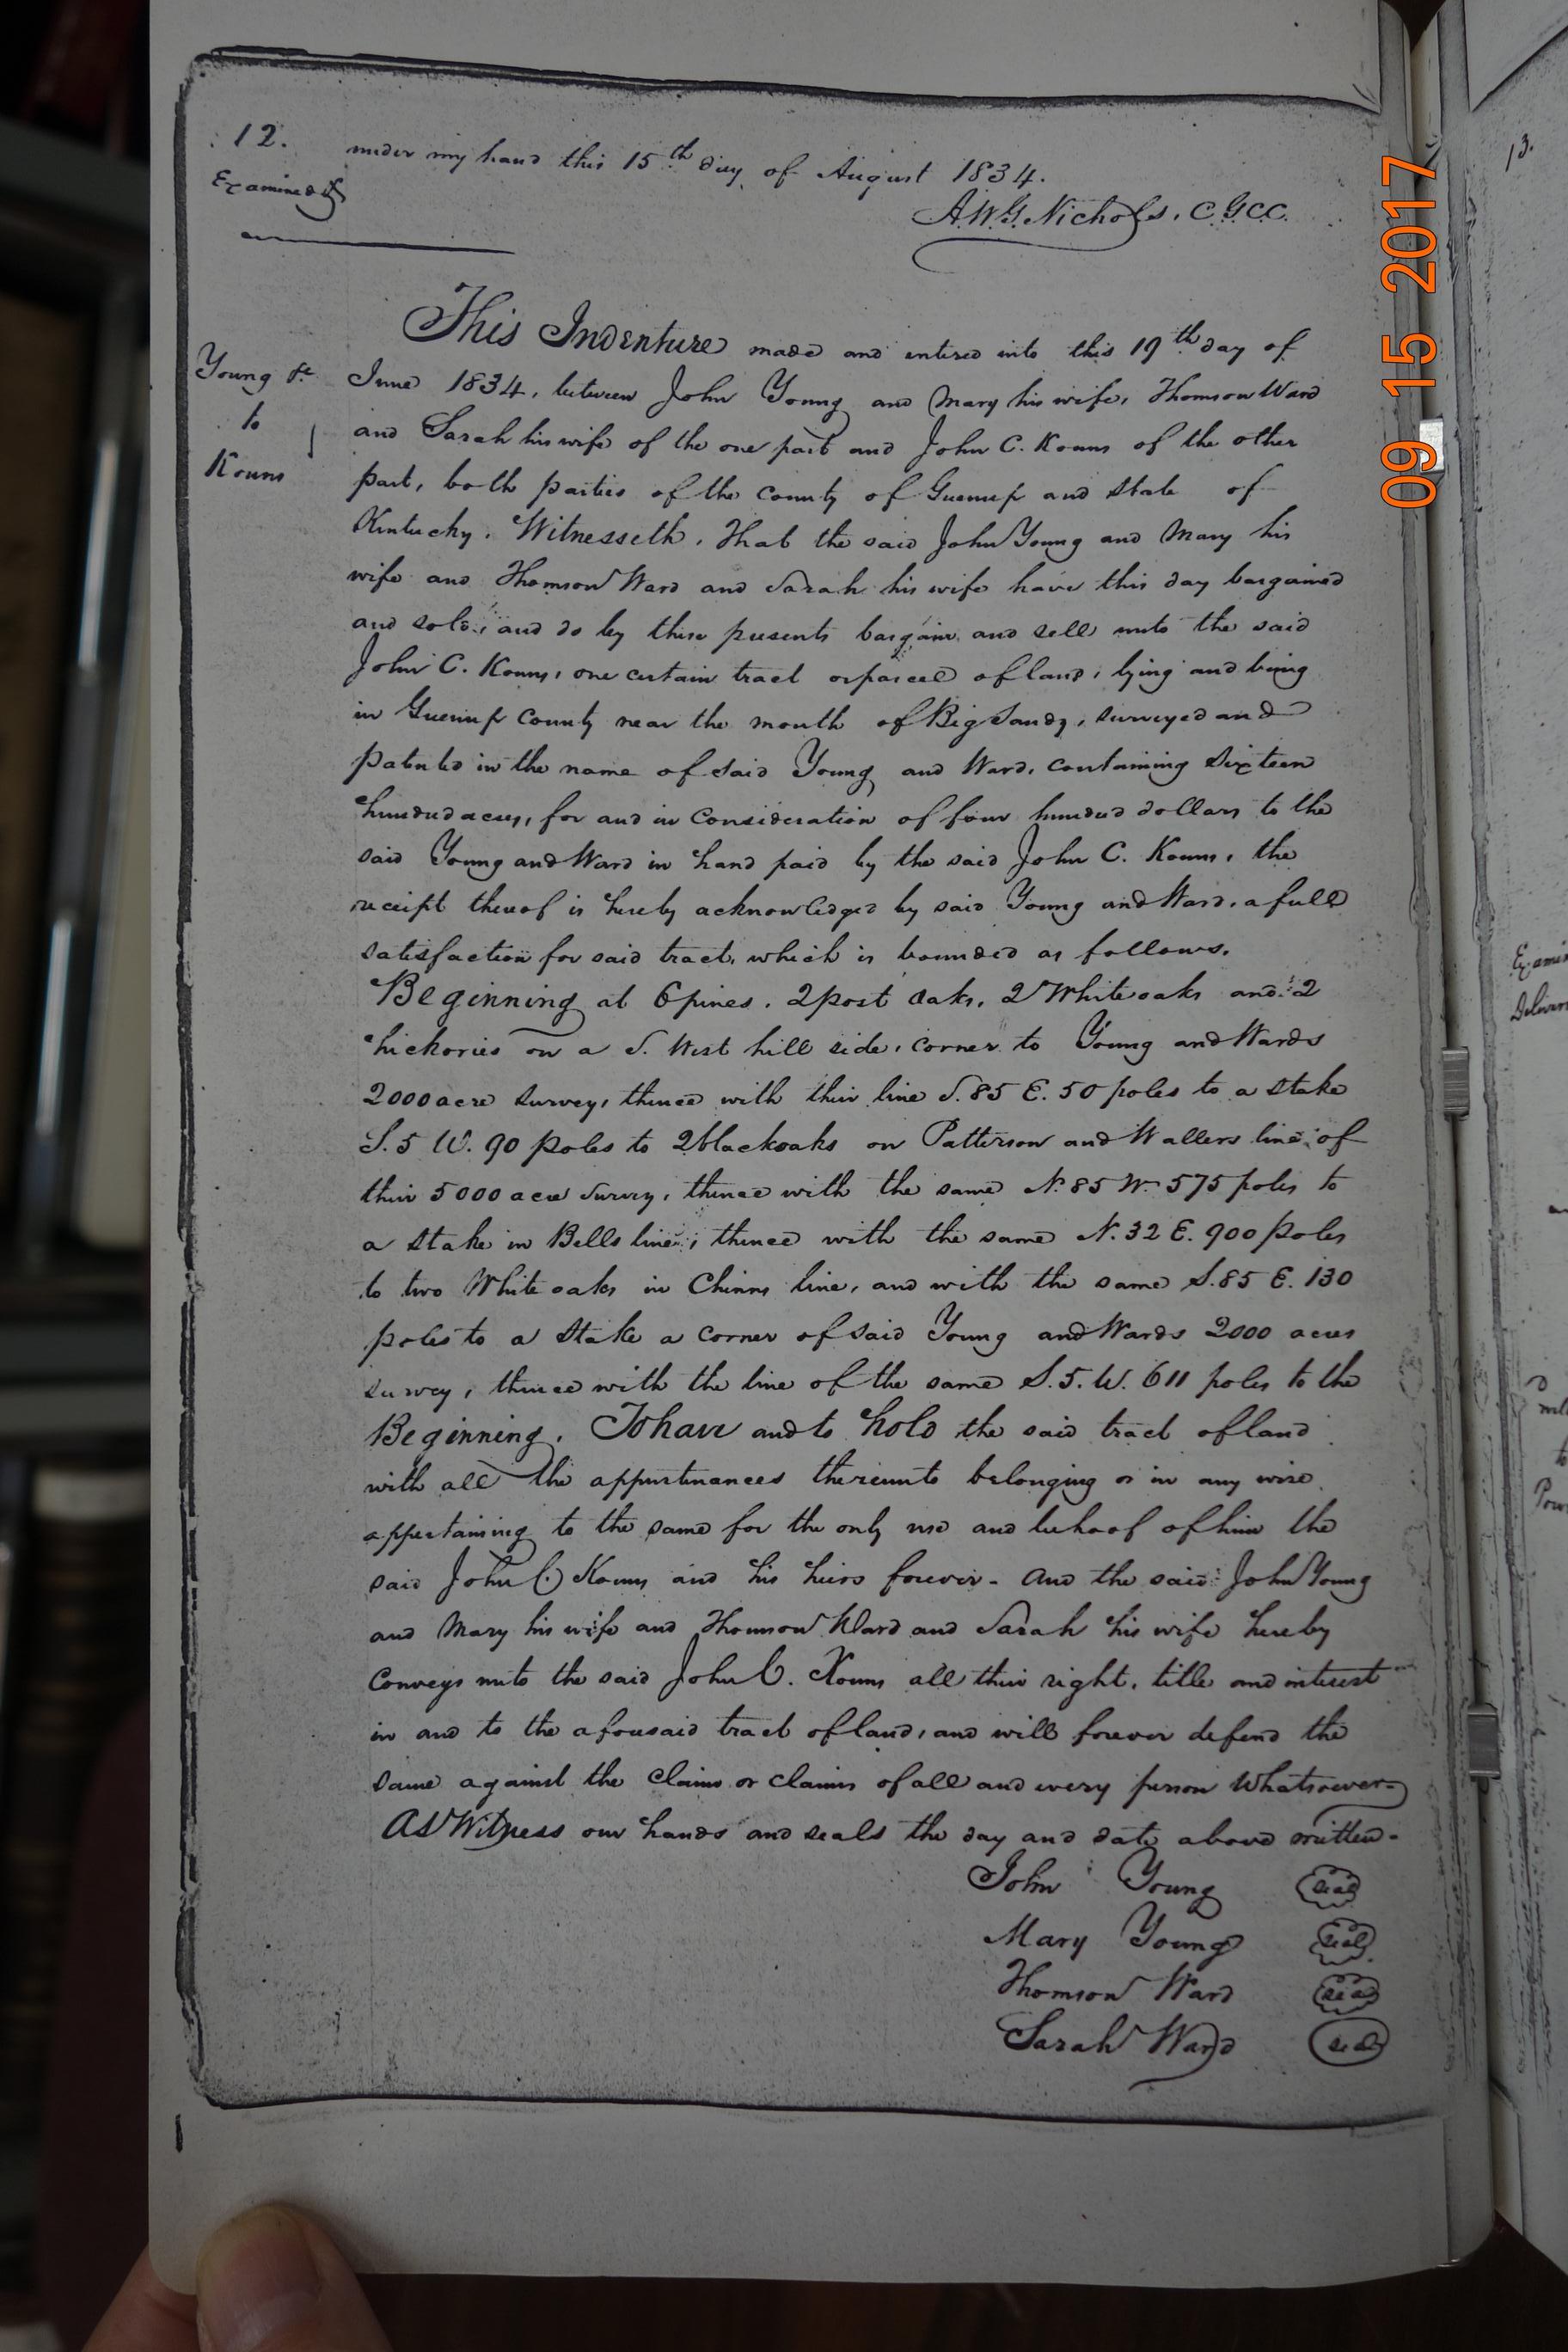 12.
under my hand this 15th day of August 1834.
Examined
A.W.G. Nichols, C.G.C.C.
Young &c
to
Kouns
This Indenture made and entered into this 19th day of
June 1834, between John Young and Mary his wife, Thomson Ward
and Sarah his wife of the one part and John C. Kouns of the other
part, both parties of the county of Greenup and State of
Kentucky. Witnesseth, That the said John Young and Mary his
wife and Thomson Ward and Sarah his wife have this day bargained
and sold, and do by these presents bargain and sell unto the said
John C. Kouns, one certain tract or parcel of land, lying and being
in Greenup County near the mouth of Big Sandy, surveyed and
patented in the name of said Young and Ward, containing Sixteen
hundred acres, for and in Consideration of four hundred dollars to the
said Young and Ward in hand paid by the said John C. Kouns, the
receipt thereof is hereby acknowledged by said Young and Ward, a full
satisfaction for said tract, which is bounded as follows.
Beginning at 6 pines, 2 post oaks, 2 White oaks and 2
hickories on a S. West hill side, corner to Young and Wards
2000 acre survey, thence with their line S. 85 E. 50 poles to a stake
S. 5 W. 90 poles to 2 black oaks on Patterson and Wallers line of
their 5000 acre Survey, thence with the same N. 85 W. 575 poles to
a stake in Bells line, thence with the same N. 32 E. 900 poles
to two White oaks in Chinns line, and with the same S. 85 E. 130
poles to a Stake a corner of said Young and Wards 2000 acres
survey, thence with the line of the same S. 5. W. 611 poles to the
Beginning. To have and to hold the said tract of land
with all the appurtenances thereunto belonging or in any wise
appertaining to the same for the only use and behoof of him the
said John C. Kouns and his heirs forever. And the said John Young
and Mary his wife and Thomson Ward and Sarah his wife hereby
Conveys unto the said John C. Kouns all their right, title and interest
in and to the aforesaid tract of land, and will forever defend the
same against the claim or claims of all and every person whatsoever.
As Witness our hands and seals the day and date above written.
John Young seal
Mary Young seal
Thomson Ward seal
Sarah Ward seal
09 15 2017
13.